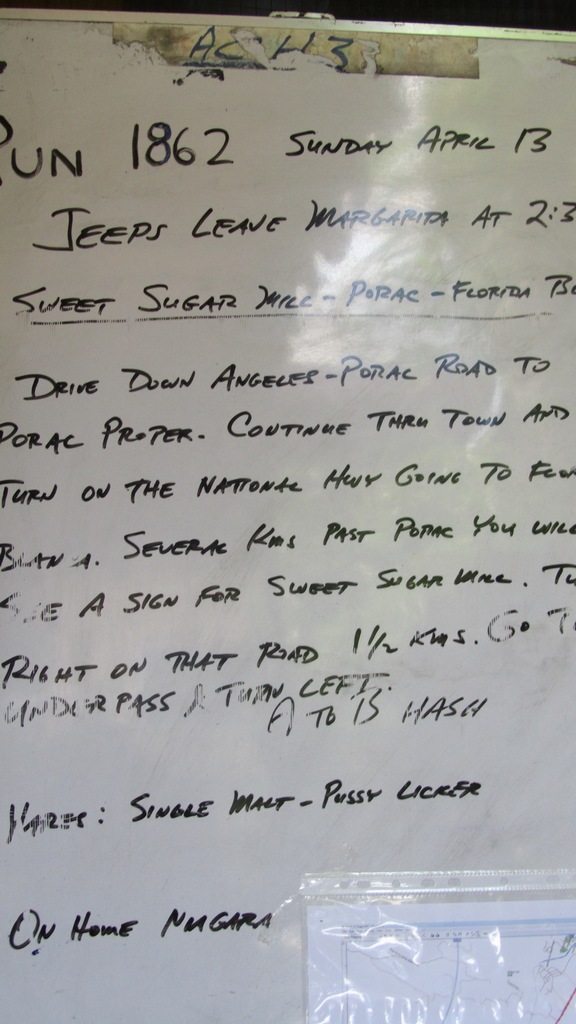 ACH3
RUN 1862 SUNDAY APRIL 13
JEEPS LEAVE MARGARITA AT 2:3
SWEET SUGAR MILL - PORAC - FLORIDA BL
DRIVE DOWN ANGELES-PORAC ROAD TO
PORAC PROPER. CONTINUE THRU TOWN AND
TURN ON THE NATIONAL HWY GOING TO FLOR
BLANCA. SEVERAL KMS PAST PORAC YOU WILL
SEE A SIGN FOR SWEET SUGAR MILL. TU
RIGHT ON THAT ROAD 1 1/2 KMS. GO T
UNDERPASS & TURN LEFT.
A TO B HASH
HARES: SINGLE MALT - PUSSY LICKER
ON HOME NIAGARA